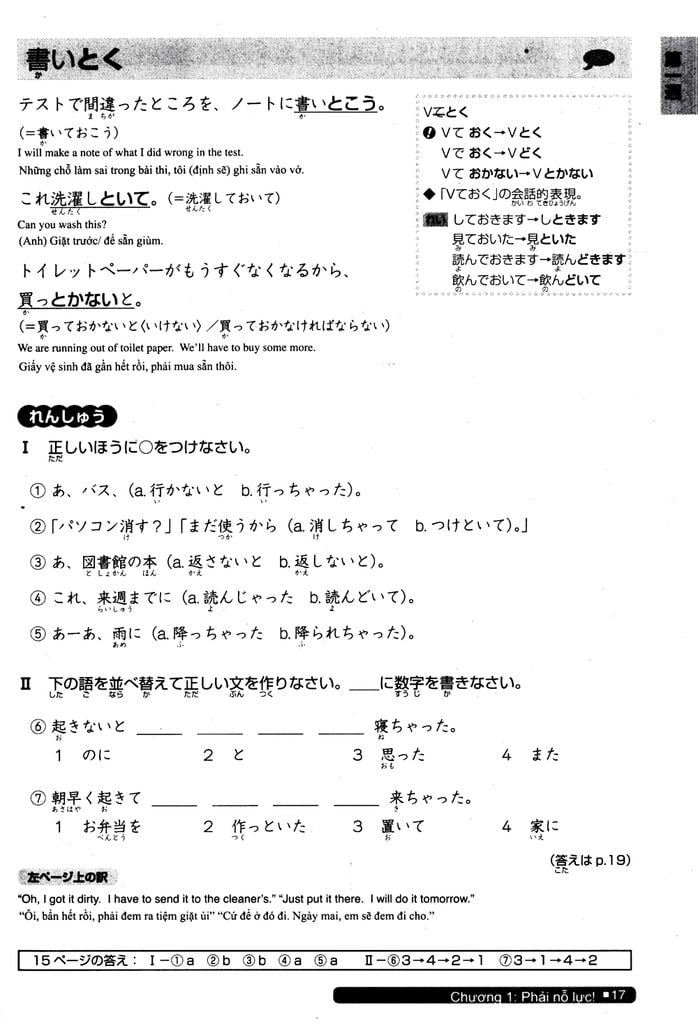 書いとく
第一週
テストで間違ったところを、ノートに書いとこう。
(=書いておこう)
I will make a note of what I did wrong in the test.
Những chỗ làm sai trong bài thi, tôi (định sẽ) ghi sẵn vào vở.
これ洗濯しといて。(=洗濯しておいて)
Can you wash this?
(Anh) Giặt trước/ để sẵn giùm.
トイレットペーパーがもうすぐなくなるから、
買っとかないと。
(=買っておかないと〈いけない〉/買っておかなければならない)
We are running out of toilet paper. We'll have to buy some more.
Giấy vệ sinh đã gần hết rồi, phải mua sẵn thôi.
Vてとく
Vて おく→Vとく
Vで おく→Vどく
Vて おかない→Vとかない
◆「Vておく」の会話的表現。
れい しておきます→しときます
見ておいた→見といた
読んでおきます→読んどきます
飲んでおいて→飲んどいて
れんしゅう
Ⅰ 正しいほうに○をつけなさい。
① あ、バス、(a.行かないと b.行っちゃった)。
②「パソコン消す?」「まだ使うから(a.消しちゃって b.つけといて)。」
③ あ、図書館の本(a.返さないと b.返しないと)。
④ これ、来週までに(a.読んじゃった b.読んどいて)。
⑤ あーあ、雨に(a.降っちゃった b.降られちゃった)。
Ⅱ 下の語を並べ替えて正しい文を作りなさい。____に数字を書きなさい。
⑥ 起きないと ____ ____ ____ ____ 寝ちゃった。
1 のに 2 と 3 思った 4 また
⑦ 朝早く起きて ____ ____ ____ ____ 来ちゃった。
1 お弁当を 2 作っといた 3 置いて 4 家に
(答えは p.19)
左ページ上の訳
“Oh, I got it dirty. I have to send it to the cleaner's.” “Just put it there. I will do it tomorrow.”
“Ôi, bẩn hết rồi, phải đem ra tiệm giặt ủi” “Cứ để ở đó đi. Ngày mai, em sẽ đem đi cho.”
15ページの答え: Ⅰ-①a ②b ③b ④a ⑤a Ⅱ-⑥3→4→2→1 ⑦3→1→4→2
Chương 1: Phải nỗ lực! ■17